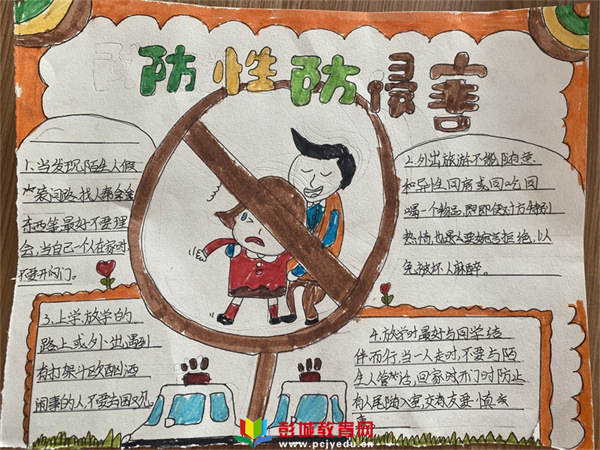 防性防侵害
1.当发现陌生人假
装问路,找人帮拿
东西等最好不要理
会,当自己一人在家时
不要开门。
2.外出旅游不
和异性同房或同吃同
喝一个物品,即使对方特别
热情,也要婉言拒绝,以
免被坏人麻醉。
3.上学,放学的
路上或外出,遇到
有打架斗欧酗酒
闹事的人,不要与围观
4.放学时最好与同学结
伴而行,当一人走时,不要与陌
生人搭话,回家时开门时防止
有人尾随入室,交友要慎
彭城教育网
www.pcjyedu.com